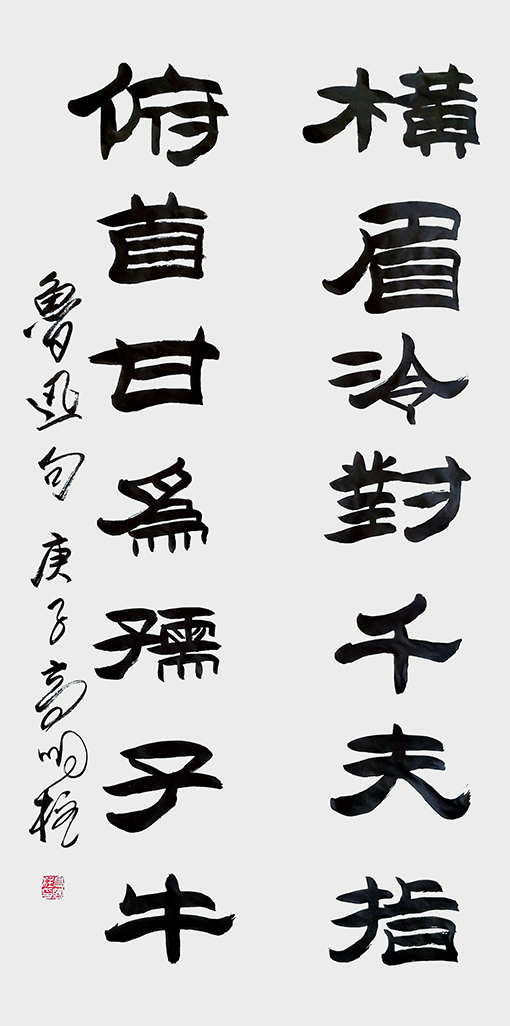 橫眉冷對千夫指
俯首甘爲孺子牛
魯迅句 庚子高明柱